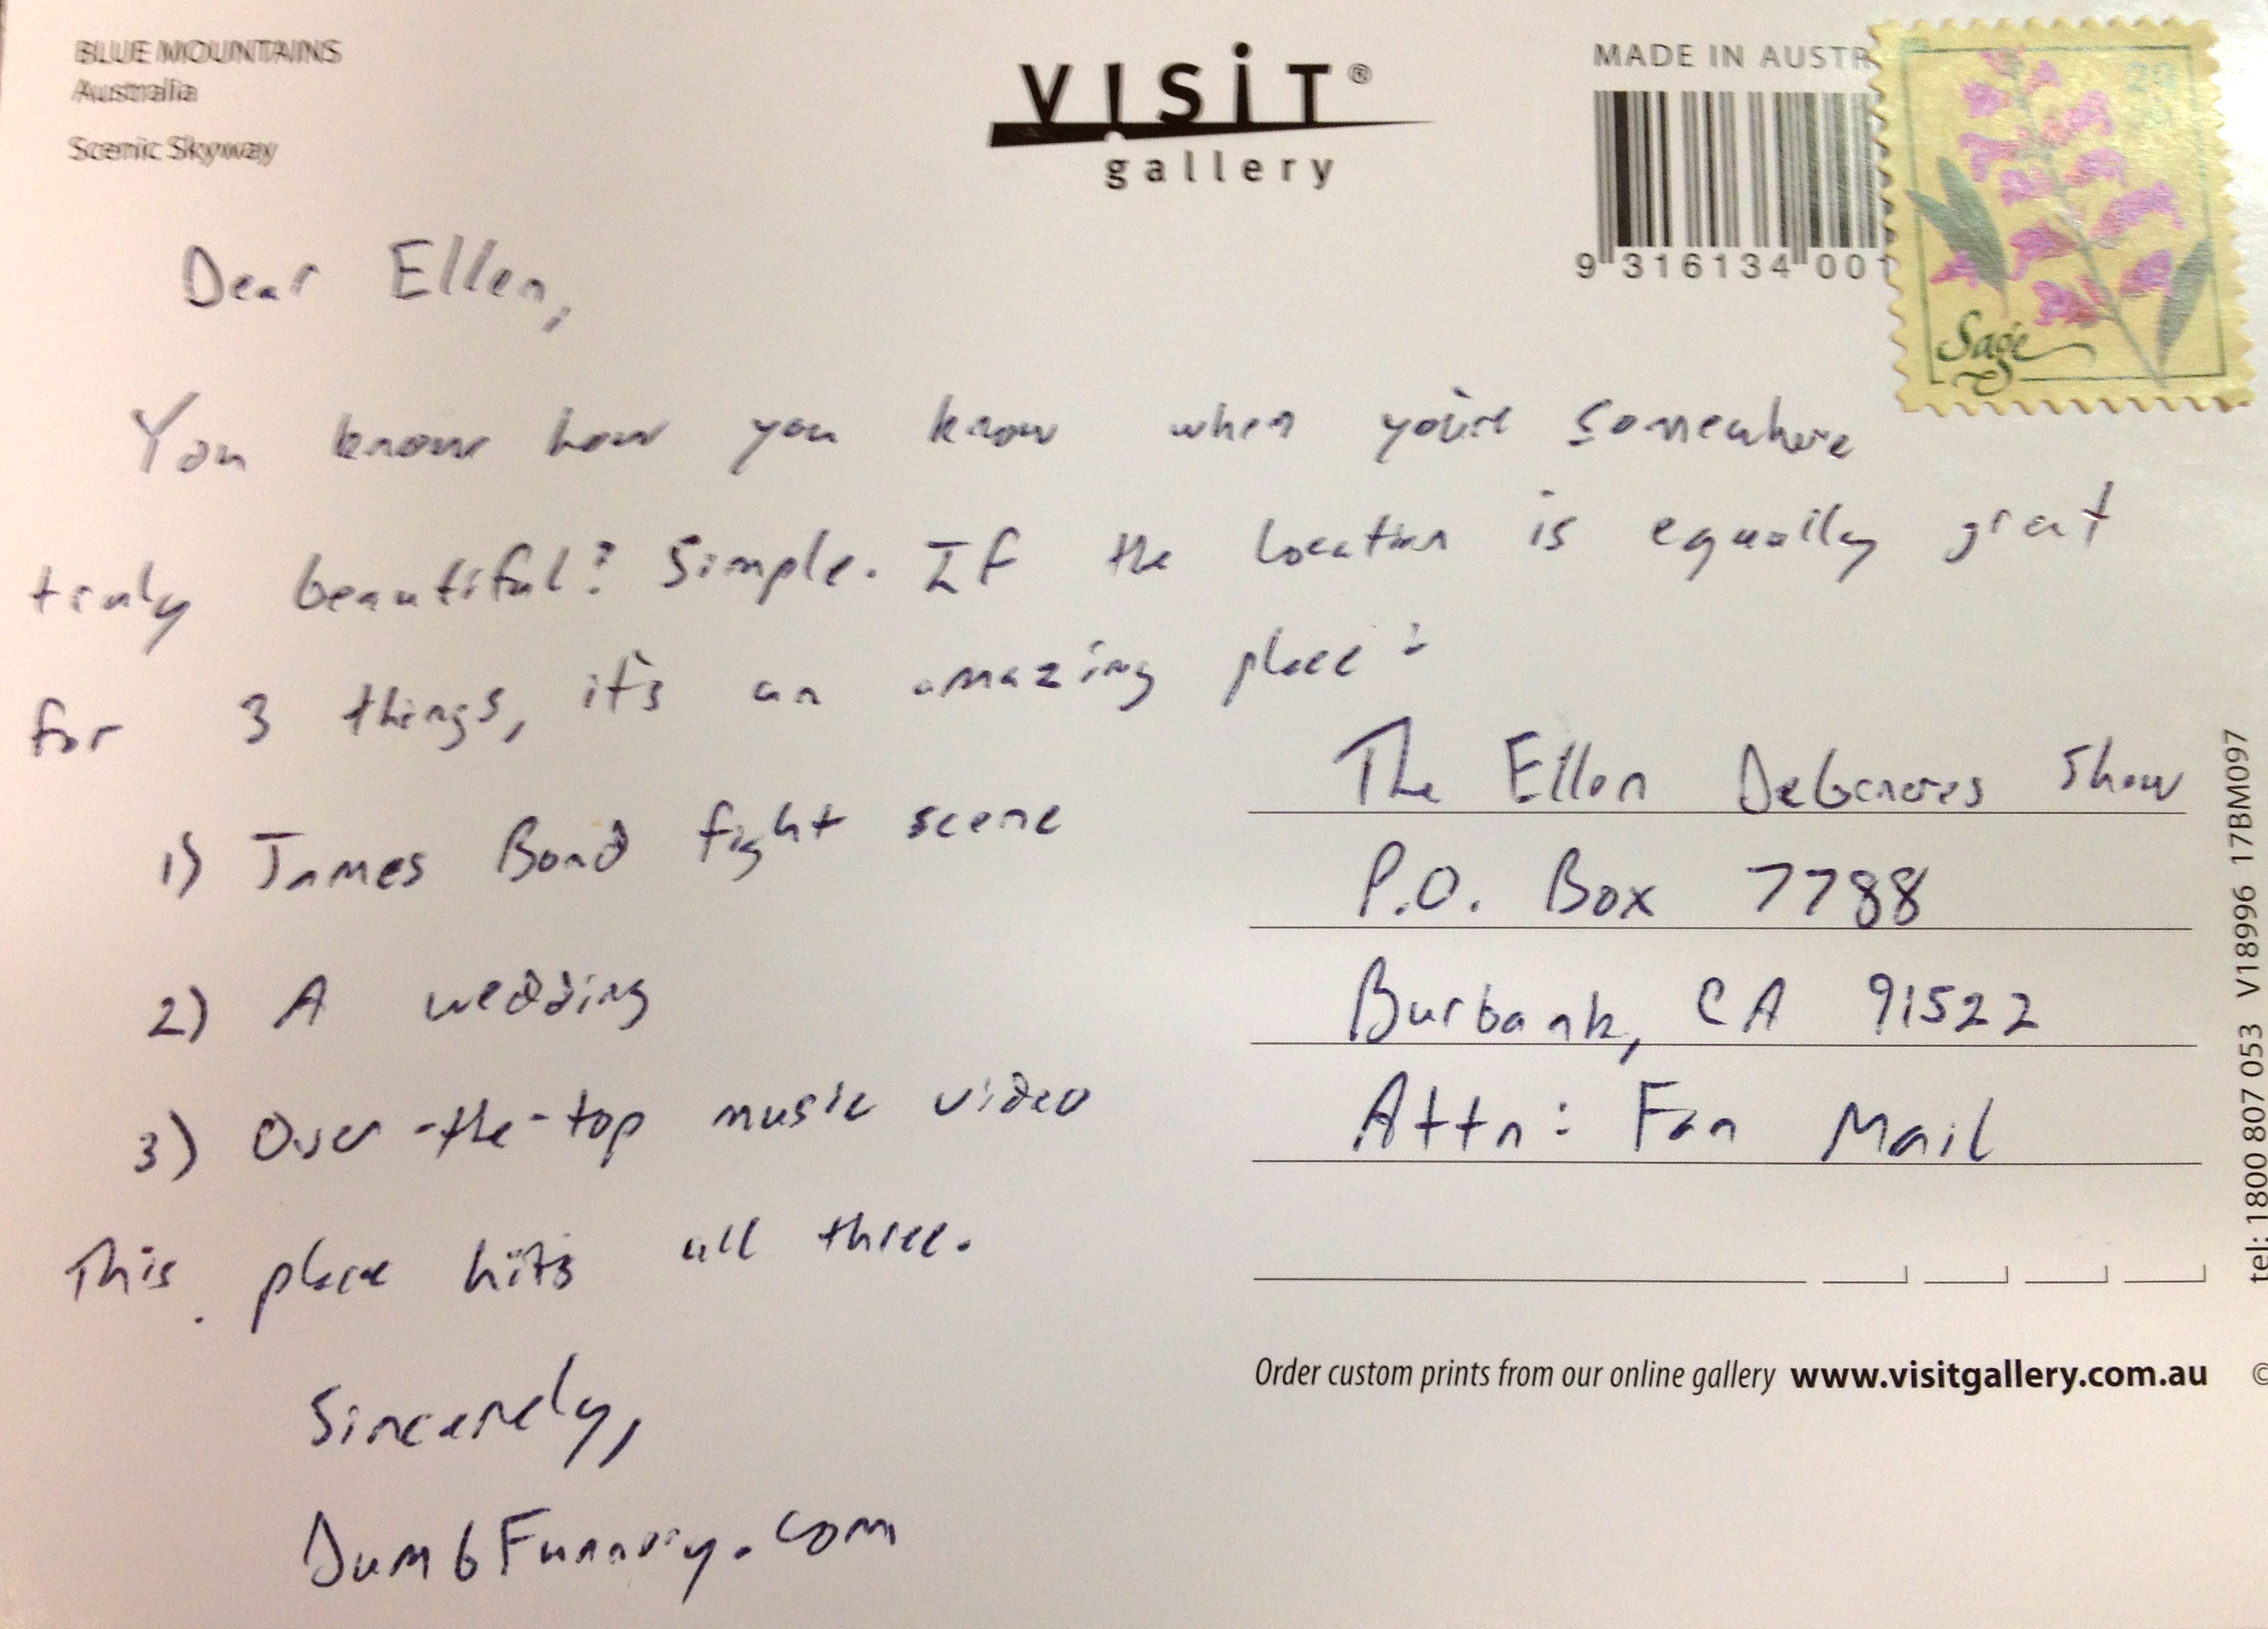 BLUE MOUNTAINS
Australia
Scenic Skyway
VISIT®
gallery
MADE IN AUSTR
9 316134 001
29
Sage
Dear Ellen,
You know how you know when you're somewhere
truly beautiful? Simple. If the location is equally great
for 3 things, it's an amazing place:
1) James Bond fight scene
2) A wedding
3) Over-the-top music video
This place hits all three.
Sincerely,
DumbFunnery.com
The Ellen DeGeneres Show
P.O. Box 7788
Burbank, CA 91522
Attn: Fan Mail
Order custom prints from our online gallery www.visitgallery.com.au
©
tel: 1800 807 053 V18996 17BM097